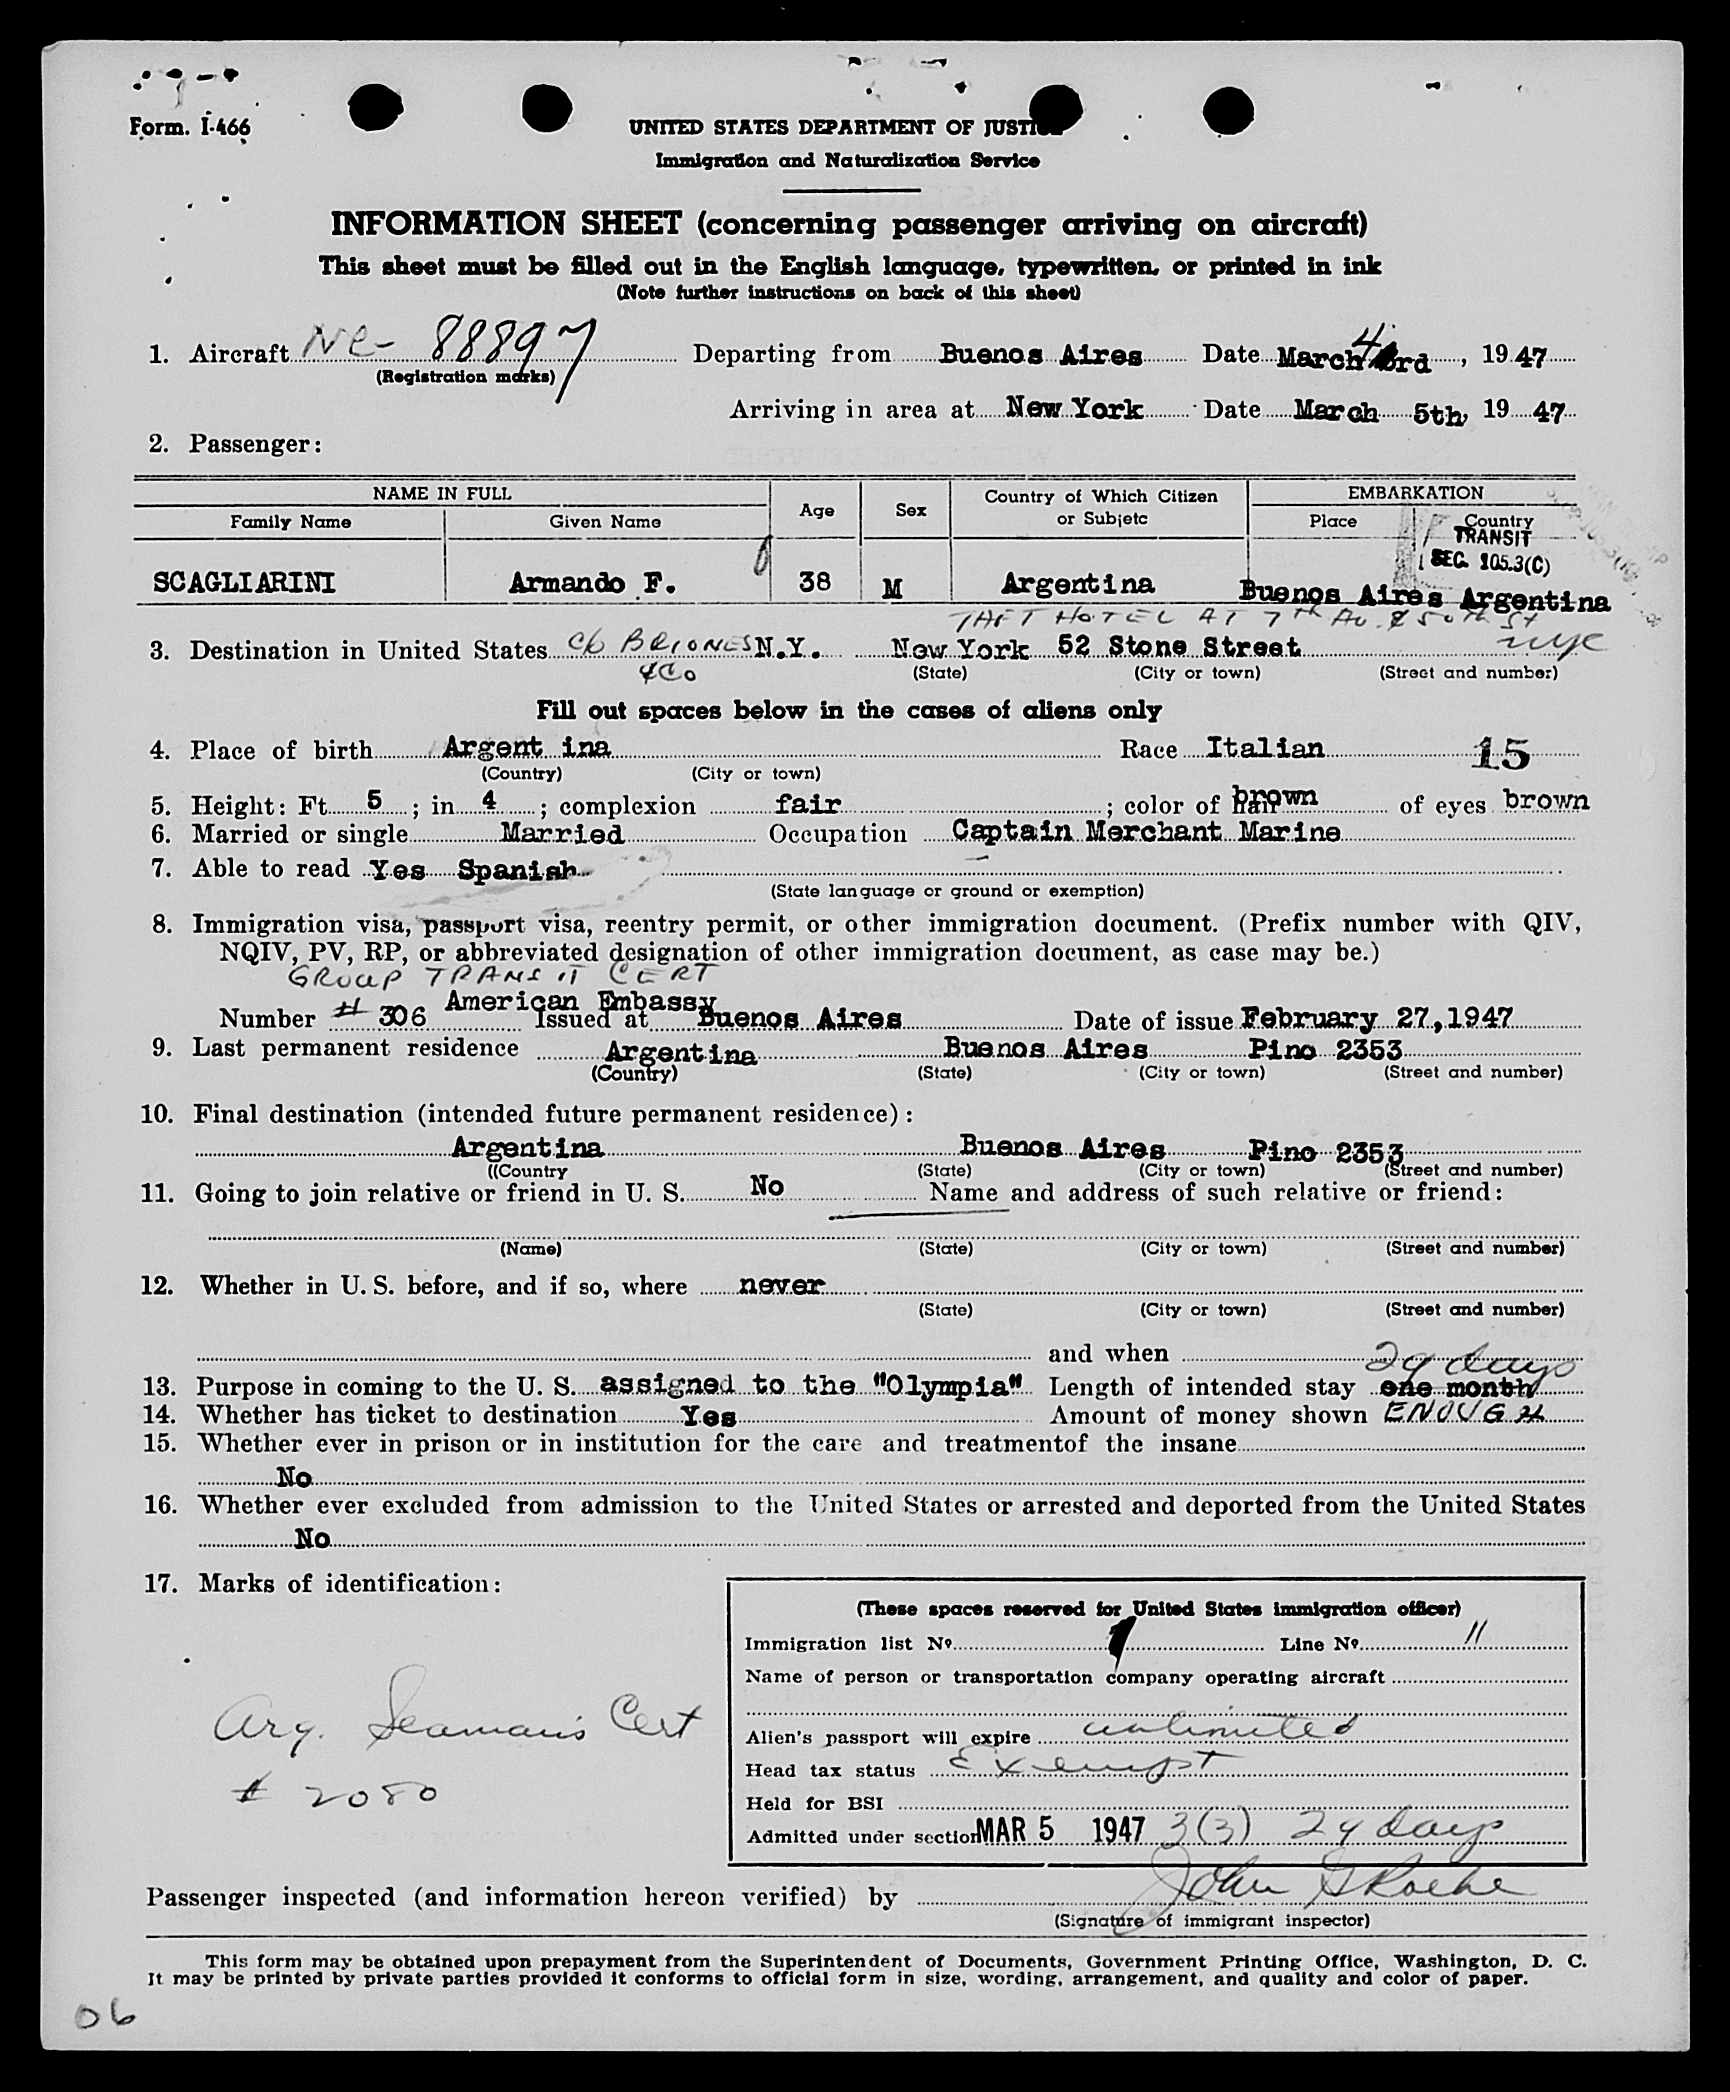 Form. I-466
UNITED STATES DEPARTMENT OF JUSTICE
Immigration and Naturalization Service
INFORMATION SHEET (concerning passenger arriving on aircraft)
This sheet must be filled out in the English language, typewritten, or printed in ink
(Note further instructions on back of this sheet)
1. Aircraft NC- 88897 Departing from Buenos Aires Date March 4 3rd, 19 47
(Registration marks)
Arriving in area at New York Date March 5th, 19 47
2. Passenger:
NAME IN FULL Age Sex Country of Which Citizen or Subjetc EMBARKATION
Family Name Given Name Place Country
TRANSIT
SEC. 105.3(C)
SCAGLIARINI Armando F. 38 M Argentina Buenos Aires Argentina
TAFT HOTEL AT 7th Av. & 50th St
3. Destination in United States c/o BRIONES N.Y. New York 52 Stone Street NYC
& Co (State) (City or town) (Street and number)
Fill out spaces below in the cases of aliens only
4. Place of birth Argent ina Race Italian 15
(Country) (City or town)
5. Height: Ft. 5 ; in. 4 ; complexion fair ; color of hair brown of eyes brown
6. Married or single Married Occupation Captain Merchant Marine
7. Able to read Yes Spanish
(State language or ground or exemption)
8. Immigration visa, passport visa, reentry permit, or other immigration document. (Prefix number with QIV,
NQIV, PV, RP, or abbreviated designation of other immigration document, as case may be.)
GROUP TRANSIT CERT
American Embassy
Number # 306 Issued at Buenos Aires Date of issue February 27,1947
9. Last permanent residence Argentina Buenos Aires Pino 2353
(Country) (State) (City or town) (Street and number)
10. Final destination (intended future permanent residence):
Argentina Buenos Aires Pino 2353
((Country (State) (City or town) (Street and number)
11. Going to join relative or friend in U. S. No Name and address of such relative or friend:
(Name) (State) (City or town) (Street and number)
12. Whether in U. S. before, and if so, where never
(State) (City or town) (Street and number)
and when
29 days
13. Purpose in coming to the U. S. assigned to the "Olympia" Length of intended stay one month
14. Whether has ticket to destination Yes Amount of money shown ENOUGH
15. Whether ever in prison or in institution for the care and treatmentof the insane
No
16. Whether ever excluded from admission to the United States or arrested and deported from the United States
No
17. Marks of identification:
Arg. Seaman's Cert
# 2080
(These spaces reserved for United States immigration officer)
Immigration list No. 1 Line No. 11
Name of person or transportation company operating aircraft
Alien's passport will expire unlimited
Head tax status Exempt
Held for BSI
Admitted under section MAR 5 1947 3(3) 29 days
Passenger inspected (and information hereon verified) by John G Roche
(Signature of immigrant inspector)
This form may be obtained upon prepayment from the Superintendent of Documents, Government Printing Office, Washington, D. C.
It may be printed by private parties provided it conforms to official form in size, wording, arrangement, and quality and color of paper.
06